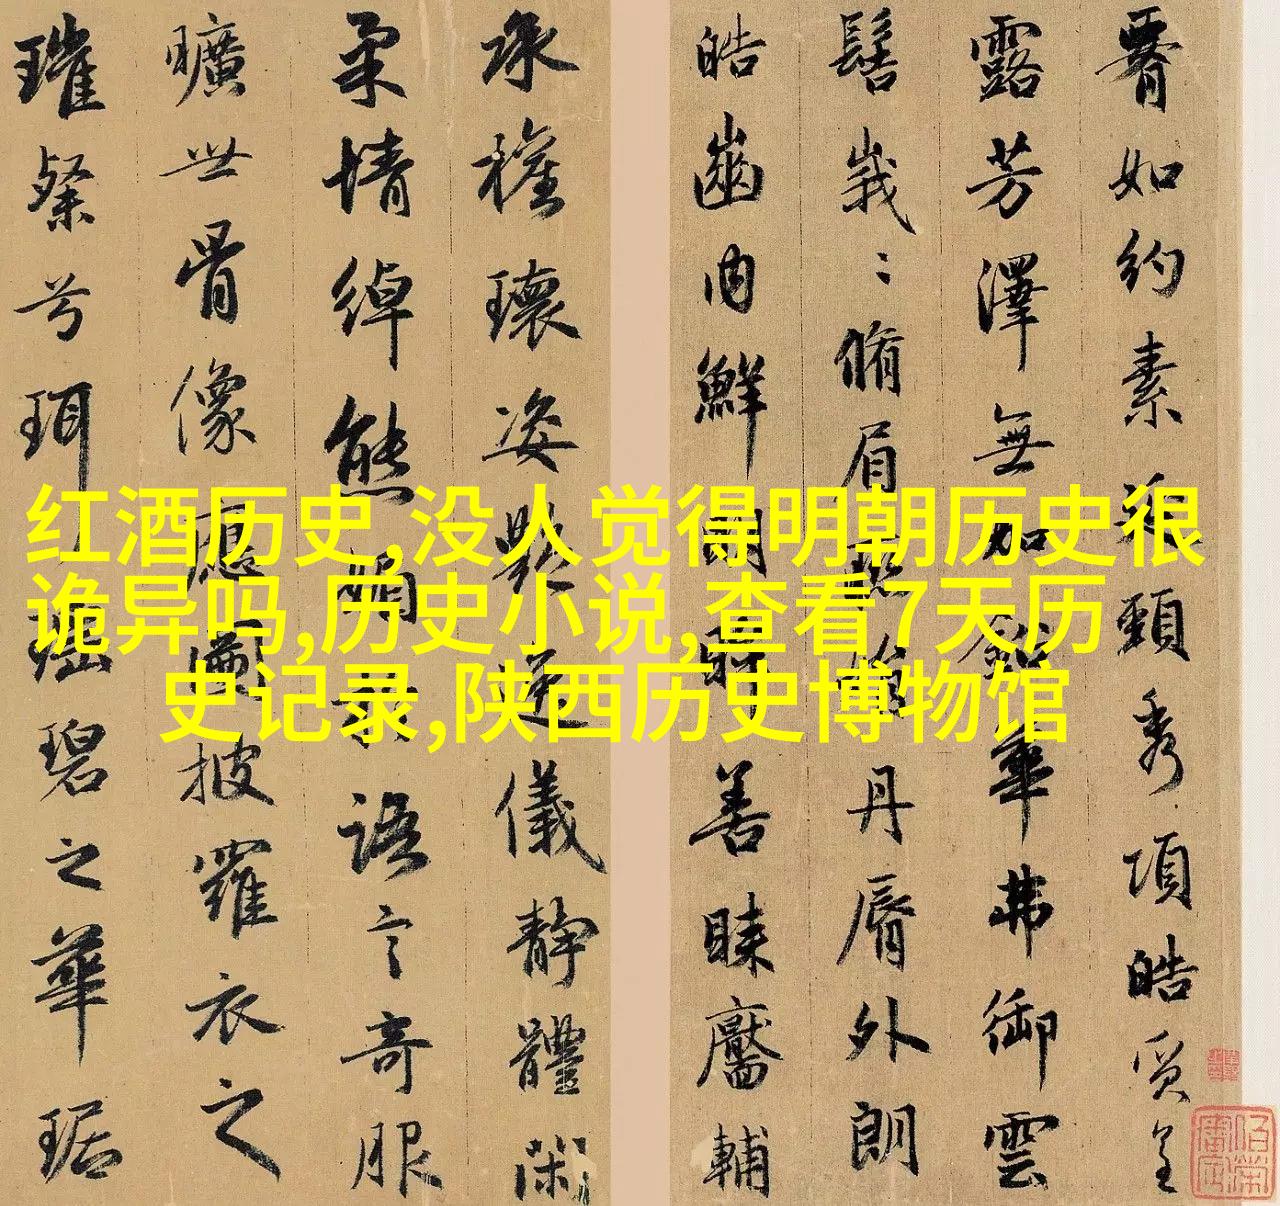 红酒历史,没人觉得明朝历史很
诡异吗,历史小说,查看7天历
史记录,陕西历史博物馆
如約素延頸秀項皓質呈
露芳澤無加鉛華弗御雲
髻峩〻脩眉聯娟丹脣外朗
皓齒内鮮明眸善睞靨輔
承權瓌姿艷逸儀靜體閑
柔情綽態媚於語言奇服
曠世骨像應圖披羅衣之
璀粲兮珥瑶碧之華琚